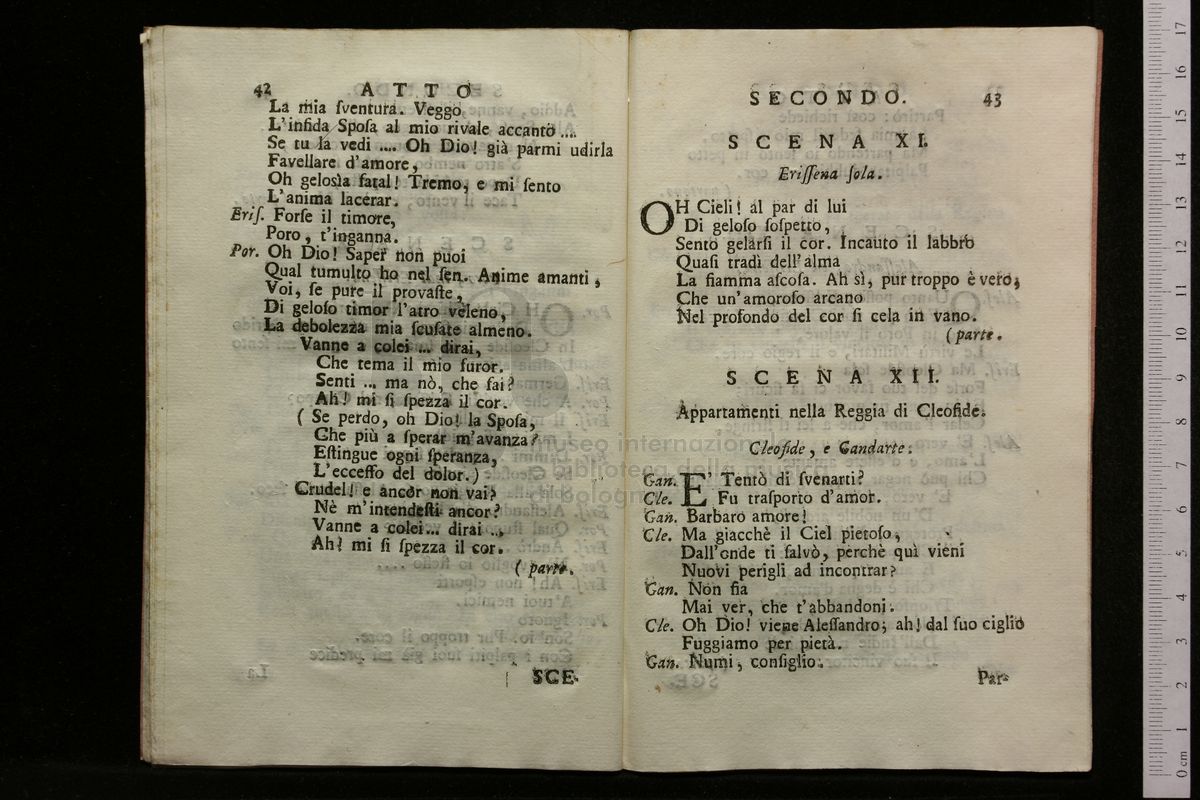 42 ATTO
La mia ſventura. Veggo
L'infida Spoſa al mio rivale accanto ....
Se tu la vedi .... Oh Dio! già parmi udirla
Favellare d'amore,
Oh geloſìa fatal! Tremo, e mi ſento
L'anima lacerar.
Eriſ. Forſe il timore,
Poro, t'inganna.
Por. Oh Dio! Saper non puoi
Qual tumulto ho nel ſen. Anime amanti,
Voi, ſe pure il provaſte,
Di geloſo timor l'atro veleno,
La debolezza mia ſcuſate almeno.
Vanne a colei ... dirai,
Che tema il mio furor.
Senti ... ma nò, che fai?
Ah! mi ſi ſpezza il cor.
( Se perdo, oh Dio! la Spoſa,
Che più a ſperar m'avanza?
Eſtingue ogni ſperanza,
L'ecceſſo del dolor.)
Crudel! e ancor non vai?
Nè m'intendeſti ancor?
Vanne a colei... dirai ...
Ah! mi ſi ſpezza il cor.
( parte.
SCE-
SECONDO. 43
SCENA XI.
Eriſſena ſola.
OH Cieli! al par di lui
Di geloſo ſoſpetto,
Sento gelarſi il cor. Incauto il labbro
Quaſi tradì dell'alma
La fiamma aſcoſa. Ah sì, pur troppo è vero,
Che un'amoroſo arcano
Nel profondo del cor ſi cela in vano.
(parte.
SCENA XII.
Appartamenti nella Reggia di Cleofide.
Cleofide, e Gandarte.
Gan. E' Tentò di ſvenarti?
Cle. Fu traſporto d'amor.
Gan. Barbaro amore!
Cle. Ma giacchè il Ciel pietoſo,
Dall'onde ti ſalvò, perchè quì vieni
Nuovi perigli ad incontrar?
Gan. Non fia
Mai ver, che t'abbandoni.
Cle. Oh Dio! viene Aleſſandro; ah! dal ſuo ciglio
Fuggiamo per pietà.
Gan. Numi, conſiglio.
Par-
museo internazionale
e biblioteca della musica
di bologna
0 cm 1 2 3 4 5 6 7 8 9 10 11 12 13 14 15 16 17